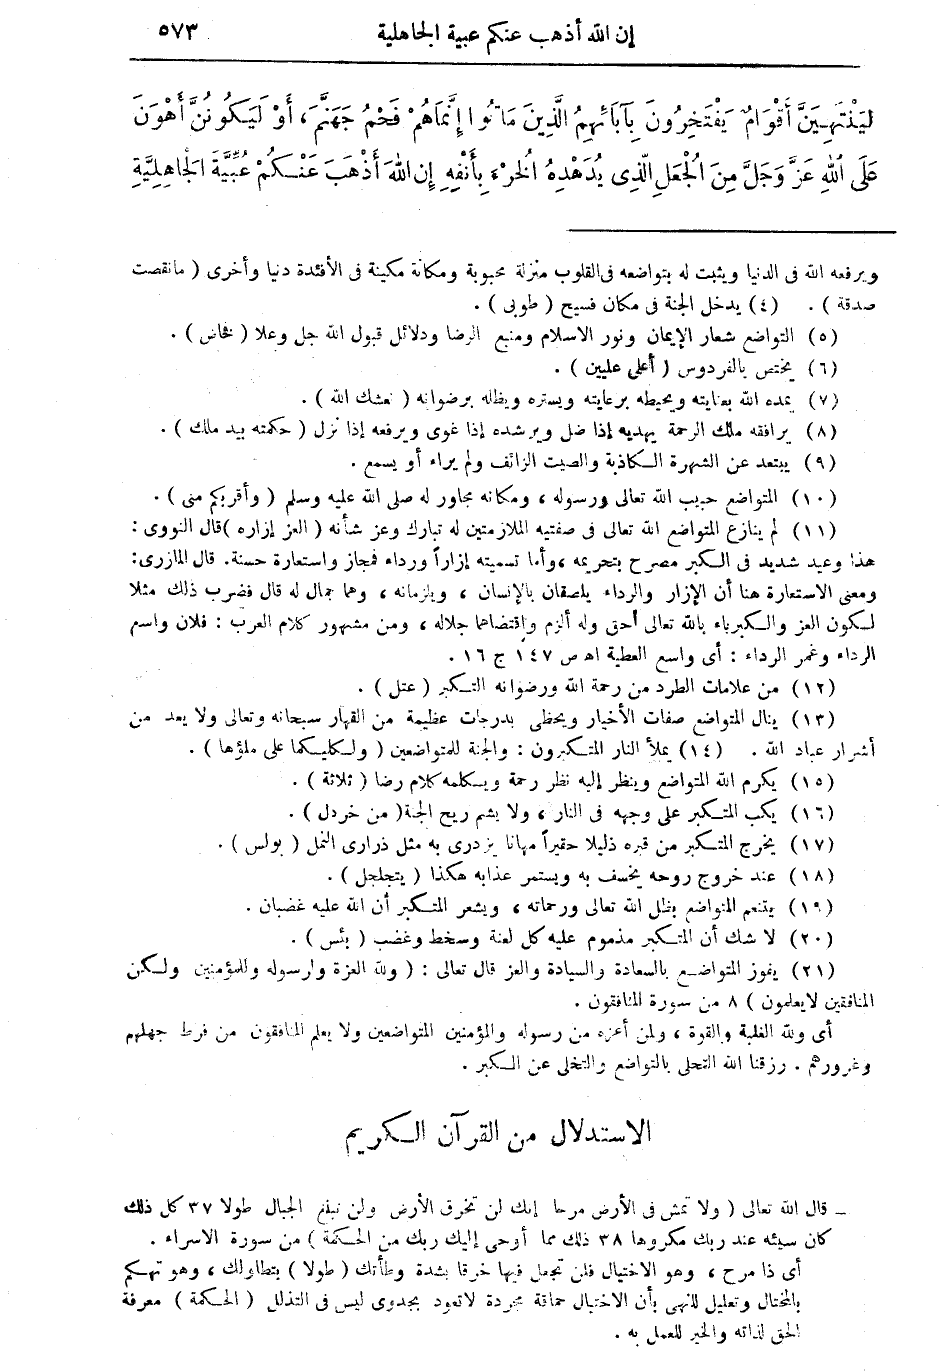 إن الله أذهب عنكم عبية الجاهلية ٥٧٣
لَيَنْتَهِيَنَّ أَقْوَامٌ يَفْتَخِرُونَ بِآبَائِهِمُ الَّذِينَ مَاتُوا إِنَّمَاهُمْ فَحْمُ جَهَنَّمَ، أَوْ لَيَكُونُنَّ أَهْوَنَ
عَلَى اللهِ عَزَّ وَجَلَّ مِنَ الْجُعَلِ الَّذِى يُدَهْدِهُ الْخِرْءَ بِأَنْفِهِ إِنَّ اللهَ أَذْهَبَ عَنْكُمْ عُبِّيَّةَ الْجَاهِلِيَّةِ
ويرفعه الله فى الدنيا ويثبت له بتواضعه فى القلوب منزلة محبوبة ومكانة مكينة فى الأفئدة دنيا وأخرى ( مانقصت
صدقة ) . (٤) يدخل الجنة فى مكان فسيح ( طوبى ) .
(٥) التواضع شعار الإيمان ونور الاسلام ومنبع الرضا ودلائل قبول الله جل وعلا ( فخاض ) .
(٦) يختص بالفردوس ( أعلى عليين ) .
(٧) يمده الله بعنايته ويحيطه برعايته ويستره ويظله برضوانه ( نعشك الله ) .
(٨) يرافقه ملك الرحمة يهديه إذا ضل ويرشده إذا غوى ويرفعه إذا نزل ( حكمته بيد ملك ) .
(٩) يبتعد عن الشهرة الكاذبة والصيت الزائف ولم يراء أو يسمع .
(١٠) المتواضع حبيب الله تعالى ورسوله ، ومكانه مجاور له صلى الله عليه وسلم ( وأقربكم منى ) .
(١١) لم ينازع المتواضع الله تعالى فى صفتيه الملازمتين له تبارك وعز شأنه ( العز إزاره ) قال النووى :
هذا وعيد شديد فى الكبر مصرح بتحريمه ، وأما تسميته إزاراً ورداء فمجاز واستعارة حسنة. قال المازرى:
ومعنى الاستعارة هنا أن الإزار والرداء يلصقان بالإنسان ، ويلزمانه ، وهما جمال له قال فضرب ذلك مثلا
لكون العز والكبرياء بالله تعالى أحق وله ألزم واقتضاهما جلاله ، ومن مشهور كلام العرب : فلان واسع
الرداء وغمر الرداء : أى واسع العطية اه ص ١٤٧ ج ١٦ .
(١٢) من علامات الطرد من رحمة الله ورضوانه التكبر ( عتل ) .
(١٣) ينال المتواضع صفات الأخيار ويحظى بدرجات عظيمة من القهار سبحانه وتعالى ولا يعد من
أشرار عباد الله . (١٤) يملأ النار المتكبرون : والجنة للمتواضعين ( ولكليكما على ملؤها ) .
(١٥) يكرم الله المتواضع وينظر إليه نظر رحمة ويكلمه كلام رضا ( ثلاثة ) .
(١٦) يكب المتكبر على وجهه فى النار ، ولا يشم ريح الجنة ( من خردل ) .
(١٧) يخرج المتكبر من قبره ذليلا حقيراً مهانا يزدرى به مثل ذرارى النمل ( بولس ) .
(١٨) عند خروج روحه يخسف به ويستمر عذابه هكذا ( يتجلجل ) .
(١٩) يتنعم المتواضع بظل الله تعالى ورحماته ، ويشعر المتكبر أن الله عليه غضبان .
(٢٠) لا شك أن المتكبر مذموم عليه كل لعنة وسخط وغضب ( بئس ) .
(٢١) يفوز المتواضع بالسعادة والسيادة والعز قال تعالى : ( ولله العزة ولرسوله وللمؤمنين ولكن
المنافقين لايعلمون ) ٨ من سورة المنافقون .
أى ولله الغلبة والقوة ، ولمن أعزه من رسوله والمؤمنين المتواضعين ولا يعلم المنافقون من فرط جهلهم
وغرورهم . رزقنا الله التحلى بالتواضع والتخلى عن الكبر .
الاستدلال من القرآن الكريم
ــ قال الله تعالى ( ولا تمش فى الأرض مرحا إنك لن تخرق الأرض ولن تبلغ الجبال طولا ٣٧ كل ذلك
كان سيئه عند ربك مكروها ٣٨ ذلك مما أوحى إليك ربك من الحكمة ) من سورة الاسراء .
أى ذا مرح ، وهو الاختيال فلن تجعل فيها خرقا بشدة وطأتك ( طولا ) بتطاولك ، وهو تهكم
بالمختال وتعليل للنهى بأن الاختيال حماقة مجردة لاتعود بجدوى ليس فى التذلل ( الحكمة ) معرفة
الحق لذاته والخير للعمل به .